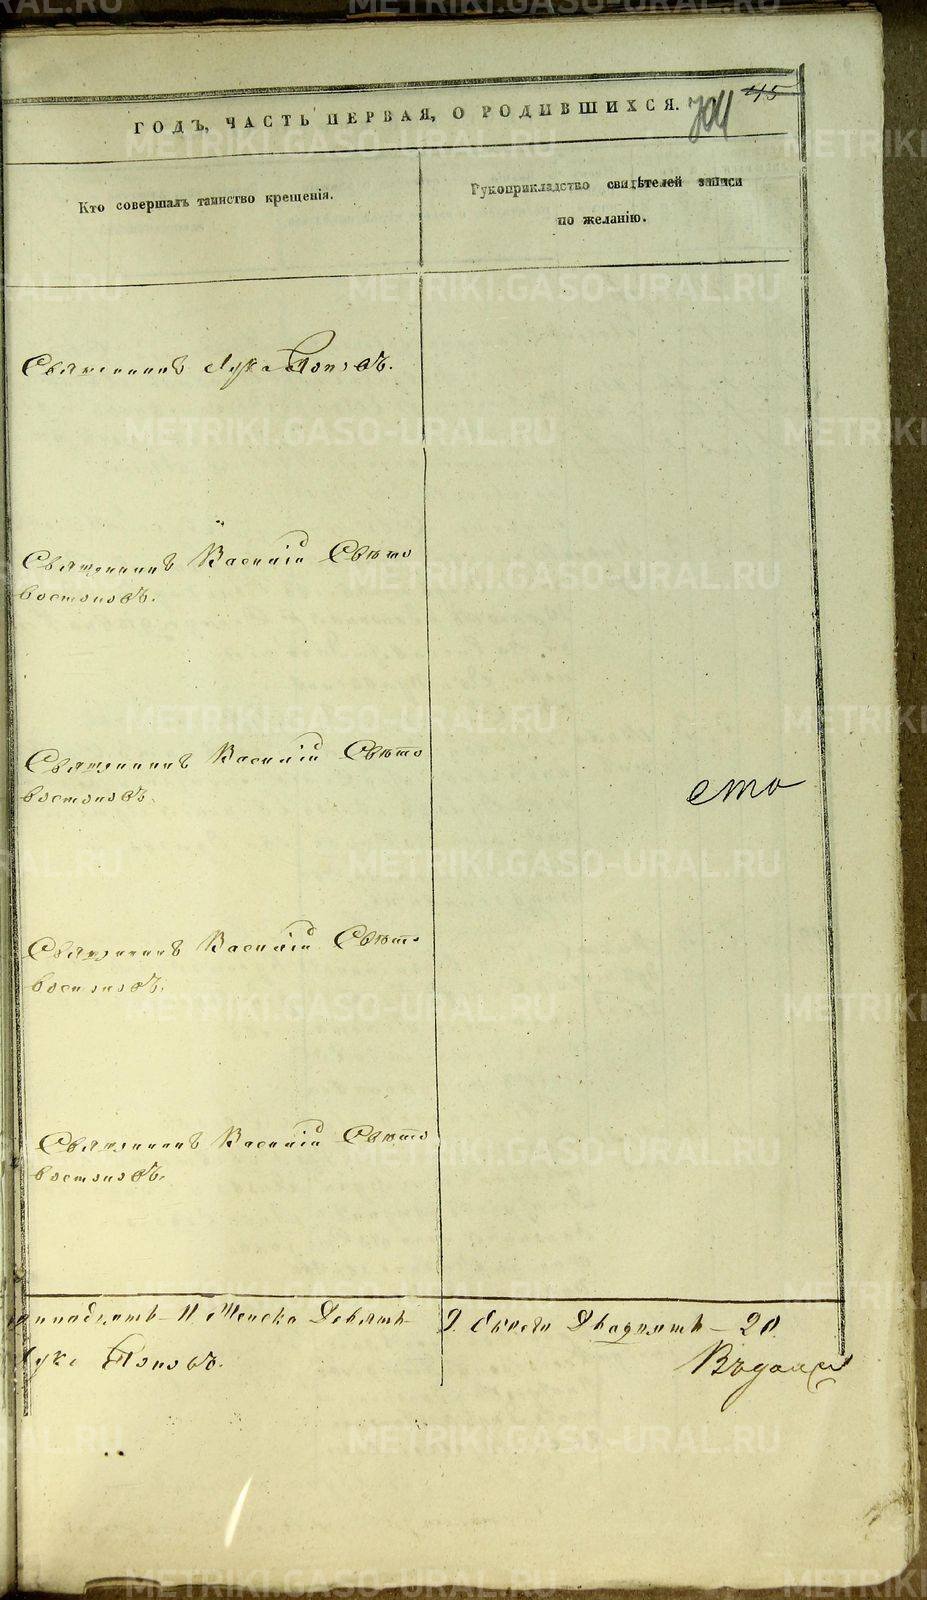 ГОДЪ, ЧАСТЬ ПЕРВАЯ, О РОДИВШИХСЯ.
45
704
Кто совершалъ таинство крещенія.
Рукоприкладство свидѣтелей записи
по желанію.
Священникъ Лука Поповъ.
Священникъ Василій Свѣто
востоковъ.
Священникъ Василій Свѣто
востоковъ.
сто
Священникъ Василій Свѣто
востоковъ.
Священникъ Василій Свѣто
востоковъ.
11 Женска Девять
9. Обоего Двадцать – 20
Лука Поповъ.
METRIKI.GASO-URAL.RU